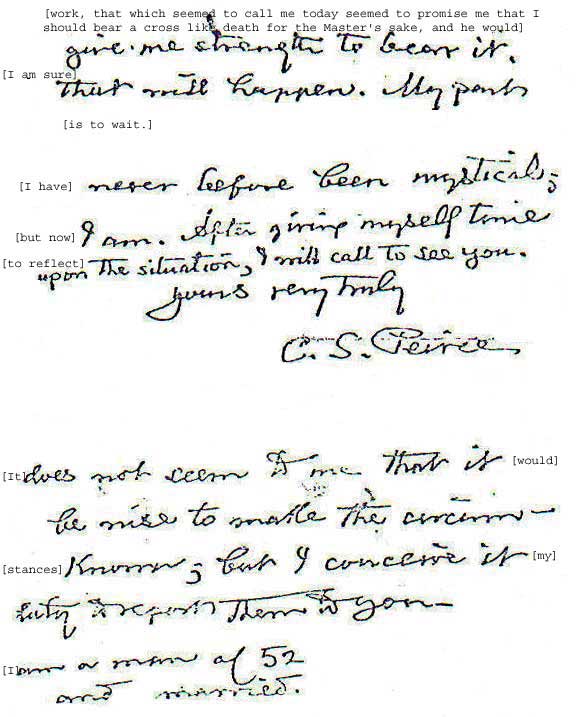 [work, that which seemed to call me today seemed to promise me that I
should bear a cross like death for the Master's sake, and he would]
give me strength to bear it.
[I am sure]
that will happen. My part
[is to wait.]
[I have] never before been mystical;
[but now] I am. After giving myself time
[to reflect] upon the situation, I will call to see you.
yours very truly
C. S. Peirce
[It] does not seem to me that it [would]
be wise to make the circum-
[stances] known; but I conceive it [my]
duty to report them to you-
[I] am a man of 52
and married.